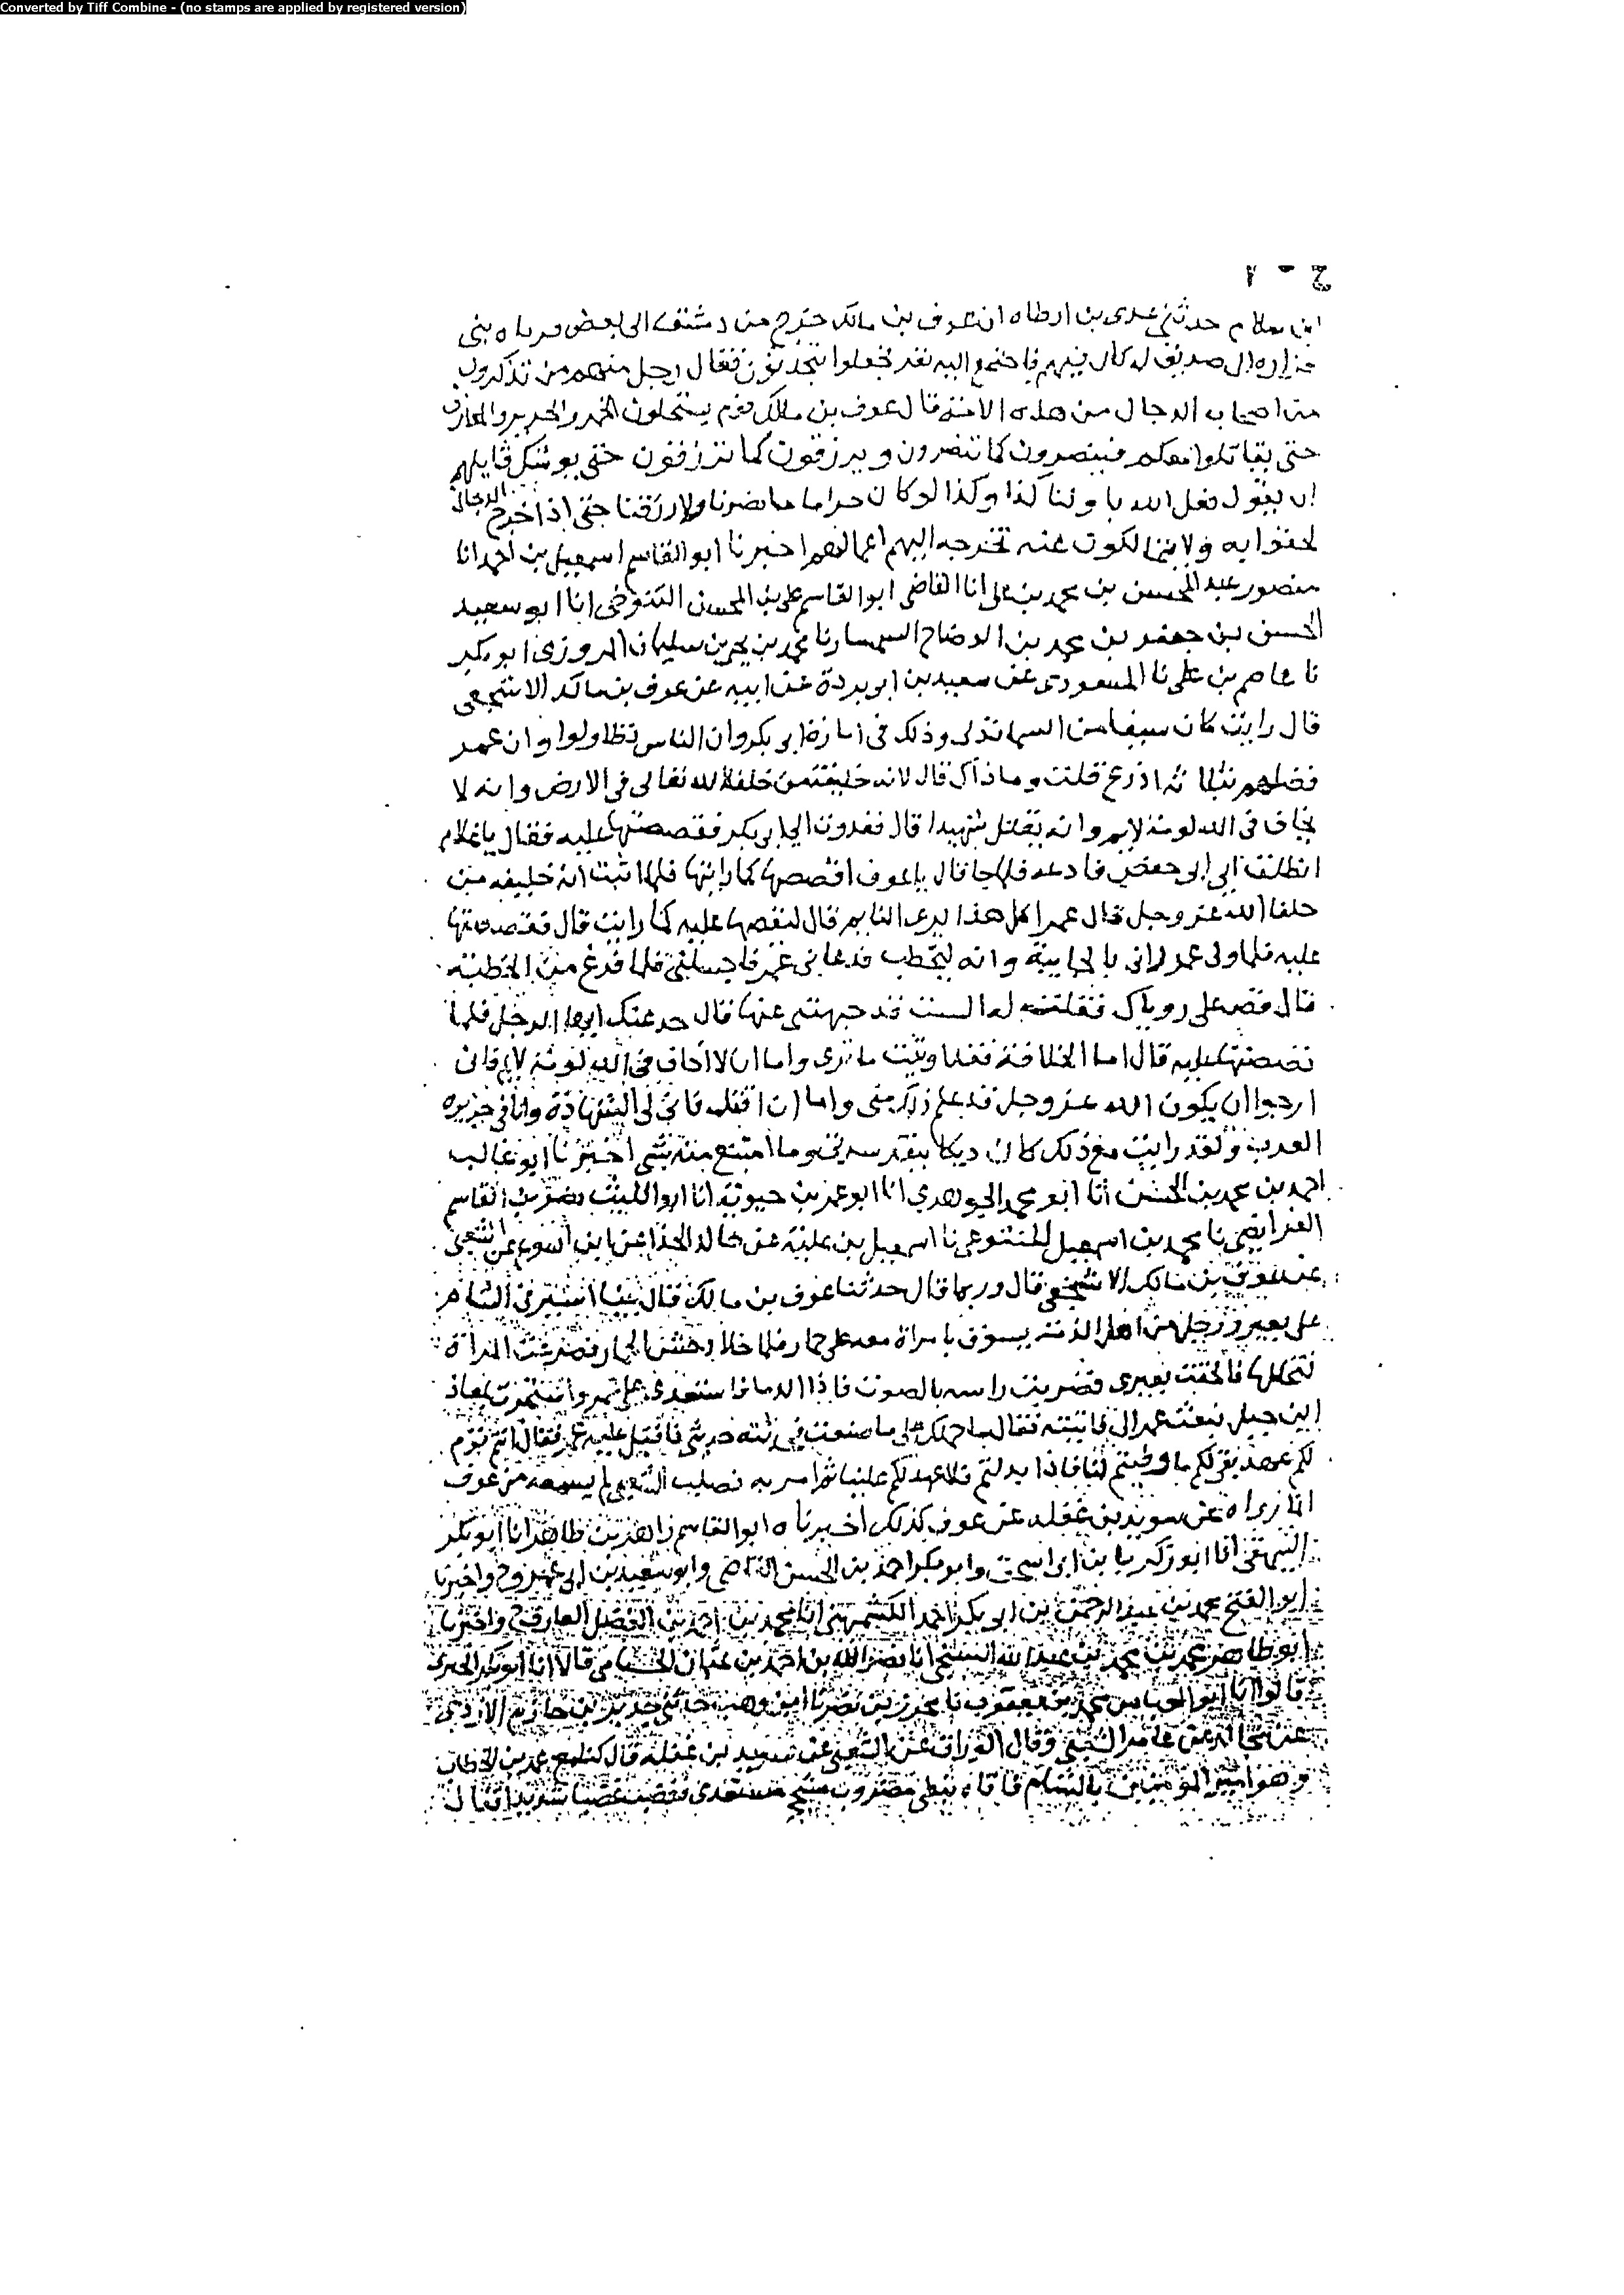 Converted by Tiff Combine - (no stamps are applied by registered version)
ابن سلام حدثني عدى بن ارطاه ان عوف بن مالك خرج من دمشق الى بعض قرياه بنى
الى صديق له كان فيهم فاجتمع اليه نفر فجعلوا يتحدثون فقال رجل منهم من تذكرون
من اصحاب الدجال من هذه الامة قال عوف بن مالك قوم يستحلون الخمر والحرير والمعازف
حتى يقاتلوا معكم فينصرون كما تنصرون ويرزقون كما ترزقون حتى يوشك قايلهم
ان يقول فعل الله باولنا كذا وكذا لو كان حراما ما نصرنا ولا رزقنا حتى اذا خرج الدجال
لحقوا به ولا يتمالكون عنه تخرجه اليهم اعمالهم اخبرنا ابو القاسم اسمعيل بن احمد انا
منصور عبد المحسن بن محمد بن على انا القاضى ابو القاسم على بن المحسن التنوخى انا ابو سعيد
الحسن بن جعفر بن محمد بن الوضاح السمسار نا محمد بن يحيى بن سليمان المروزى ابو بكر
نا عاصم بن على نا المسعودى عن سعيد بن ابو بردة عن ابيه عن عوف بن مالك الاشجعى
قال رايت كان سببا من السما تدلى وذلك فى امارة ابو بكر وان الناس تطاولوا وان عمر
فضلهم بثلاثة اذرع قلت وما ذاك قال لانه خليفة من خلفا الله تعالى فى الارض وانه لا
يخاف فى الله لومة لايم وانه يقتل شهيدا قال فغدوت الى ابى بكر فقصصتها عليه فقال يا غلام
انطلق الى ابى حفص فادعه فلما جا قال يا عوف اقصصها كما رايتها فلما اثبت انه خليفه من
خلفا الله عز وجل قال عمر اكل هذا يرى النايم قال لتقصها عليه كما رايت قال فقصصتها
عليه فلما ولى عمر رانى بالجابية وانه ليخطب فدعانى عمر فاجلسنى فلما فرغ من الخطبة
قال قص على روياك فقلت له الست قد جبهتنى عنها قال خدعتك ايها الرجل فلما
قصصتها عليه قال اما الخلافة فقد اوتيت ما ترى واما ان لا اخاف فى الله لومة لايم فانى
ارجوا ان يكون الله عز وجل قد علم ذلك منى واما ان اقتل فانى لى الشهادة وانا فى جزيره
العرب ولقد رايت مع ذلك كان ديكا ينقر سرتى وما امتنع منه بشى اخبرنا ابو غالب
احمد بن محمد بن الحسن انا ابو محمد الجوهرى انا ابو عمر بن حيوية انا ابو الليث نصر بن القاسم
الفرايضى نا محمد بن اسمعيل نا اسمعيل بن علية عن خالد الحذا عن ابن اشوع عن الشعبى
عن عوف بن مالك الاشجعى قال وربما قال حدثنا عوف بن مالك قال بينا اسير فى الشام
على بعير ورجل من اهل الذمة يسوق بامراة معه على حمار فلما خلا نخس الحمار فصرعت المراة
فالحقت بعيرى فضربت راسه بالصوت فاذا الدما فاستعدى على عمر بمعاذ
ابن جبل فبعث عمر الى فاتيته فقال ما حملك على ما صنعت فحدثته حديثى فاقبل عليه عمر فقال انتم قوم
لكم عهد نفى لكم ما وفيتم لنا فاذا بدلتم فلا عهد لكم علينا ثم امر به فصلب الشعبى لم يسمعه من عوف
انما رواه عن سويد بن غفلة عن عوف كذلك اخبرناه ابو القاسم زاهر بن طاهر انا ابو بكر
البيهقى انا ابو زكريا بن ابى اسحق وابو بكر احمد بن الحسن القاضى وابو سعيد بن ابى عمرو ح واخبرنا
ابو الفتح محمد بن عبد الرحمن بن ابو بكر احمد الكشميهنى انا محمد بن احمد بن الفضل العارف ح واخبرنا
ابو طاهر محمد بن محمد بن عبد الله السنجى انا نصر الله بن احمد بن عثمان الخشنامى قالا انا ابو بكر الحيرى
قالوا انا ابو العباس محمد بن يعقوب نا بحر بن نصر نا ابن وهب حدثنى جرير بن حازم الازدى
عن مجالد عن عامر الشعبى وقال عن الشعبى عن سويد بن غفلة قال كنا مع عمر بن الخطاب
وهو امير المؤمنين بالشام فاتاه نبطى مضروب مشجج مستعدى فغضب غضبا شديدا فقال